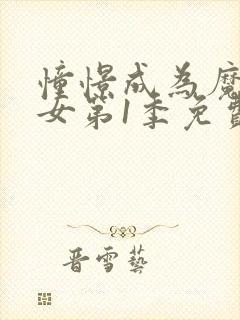 憧憬成为魔
女第1季免費
晋雪藝